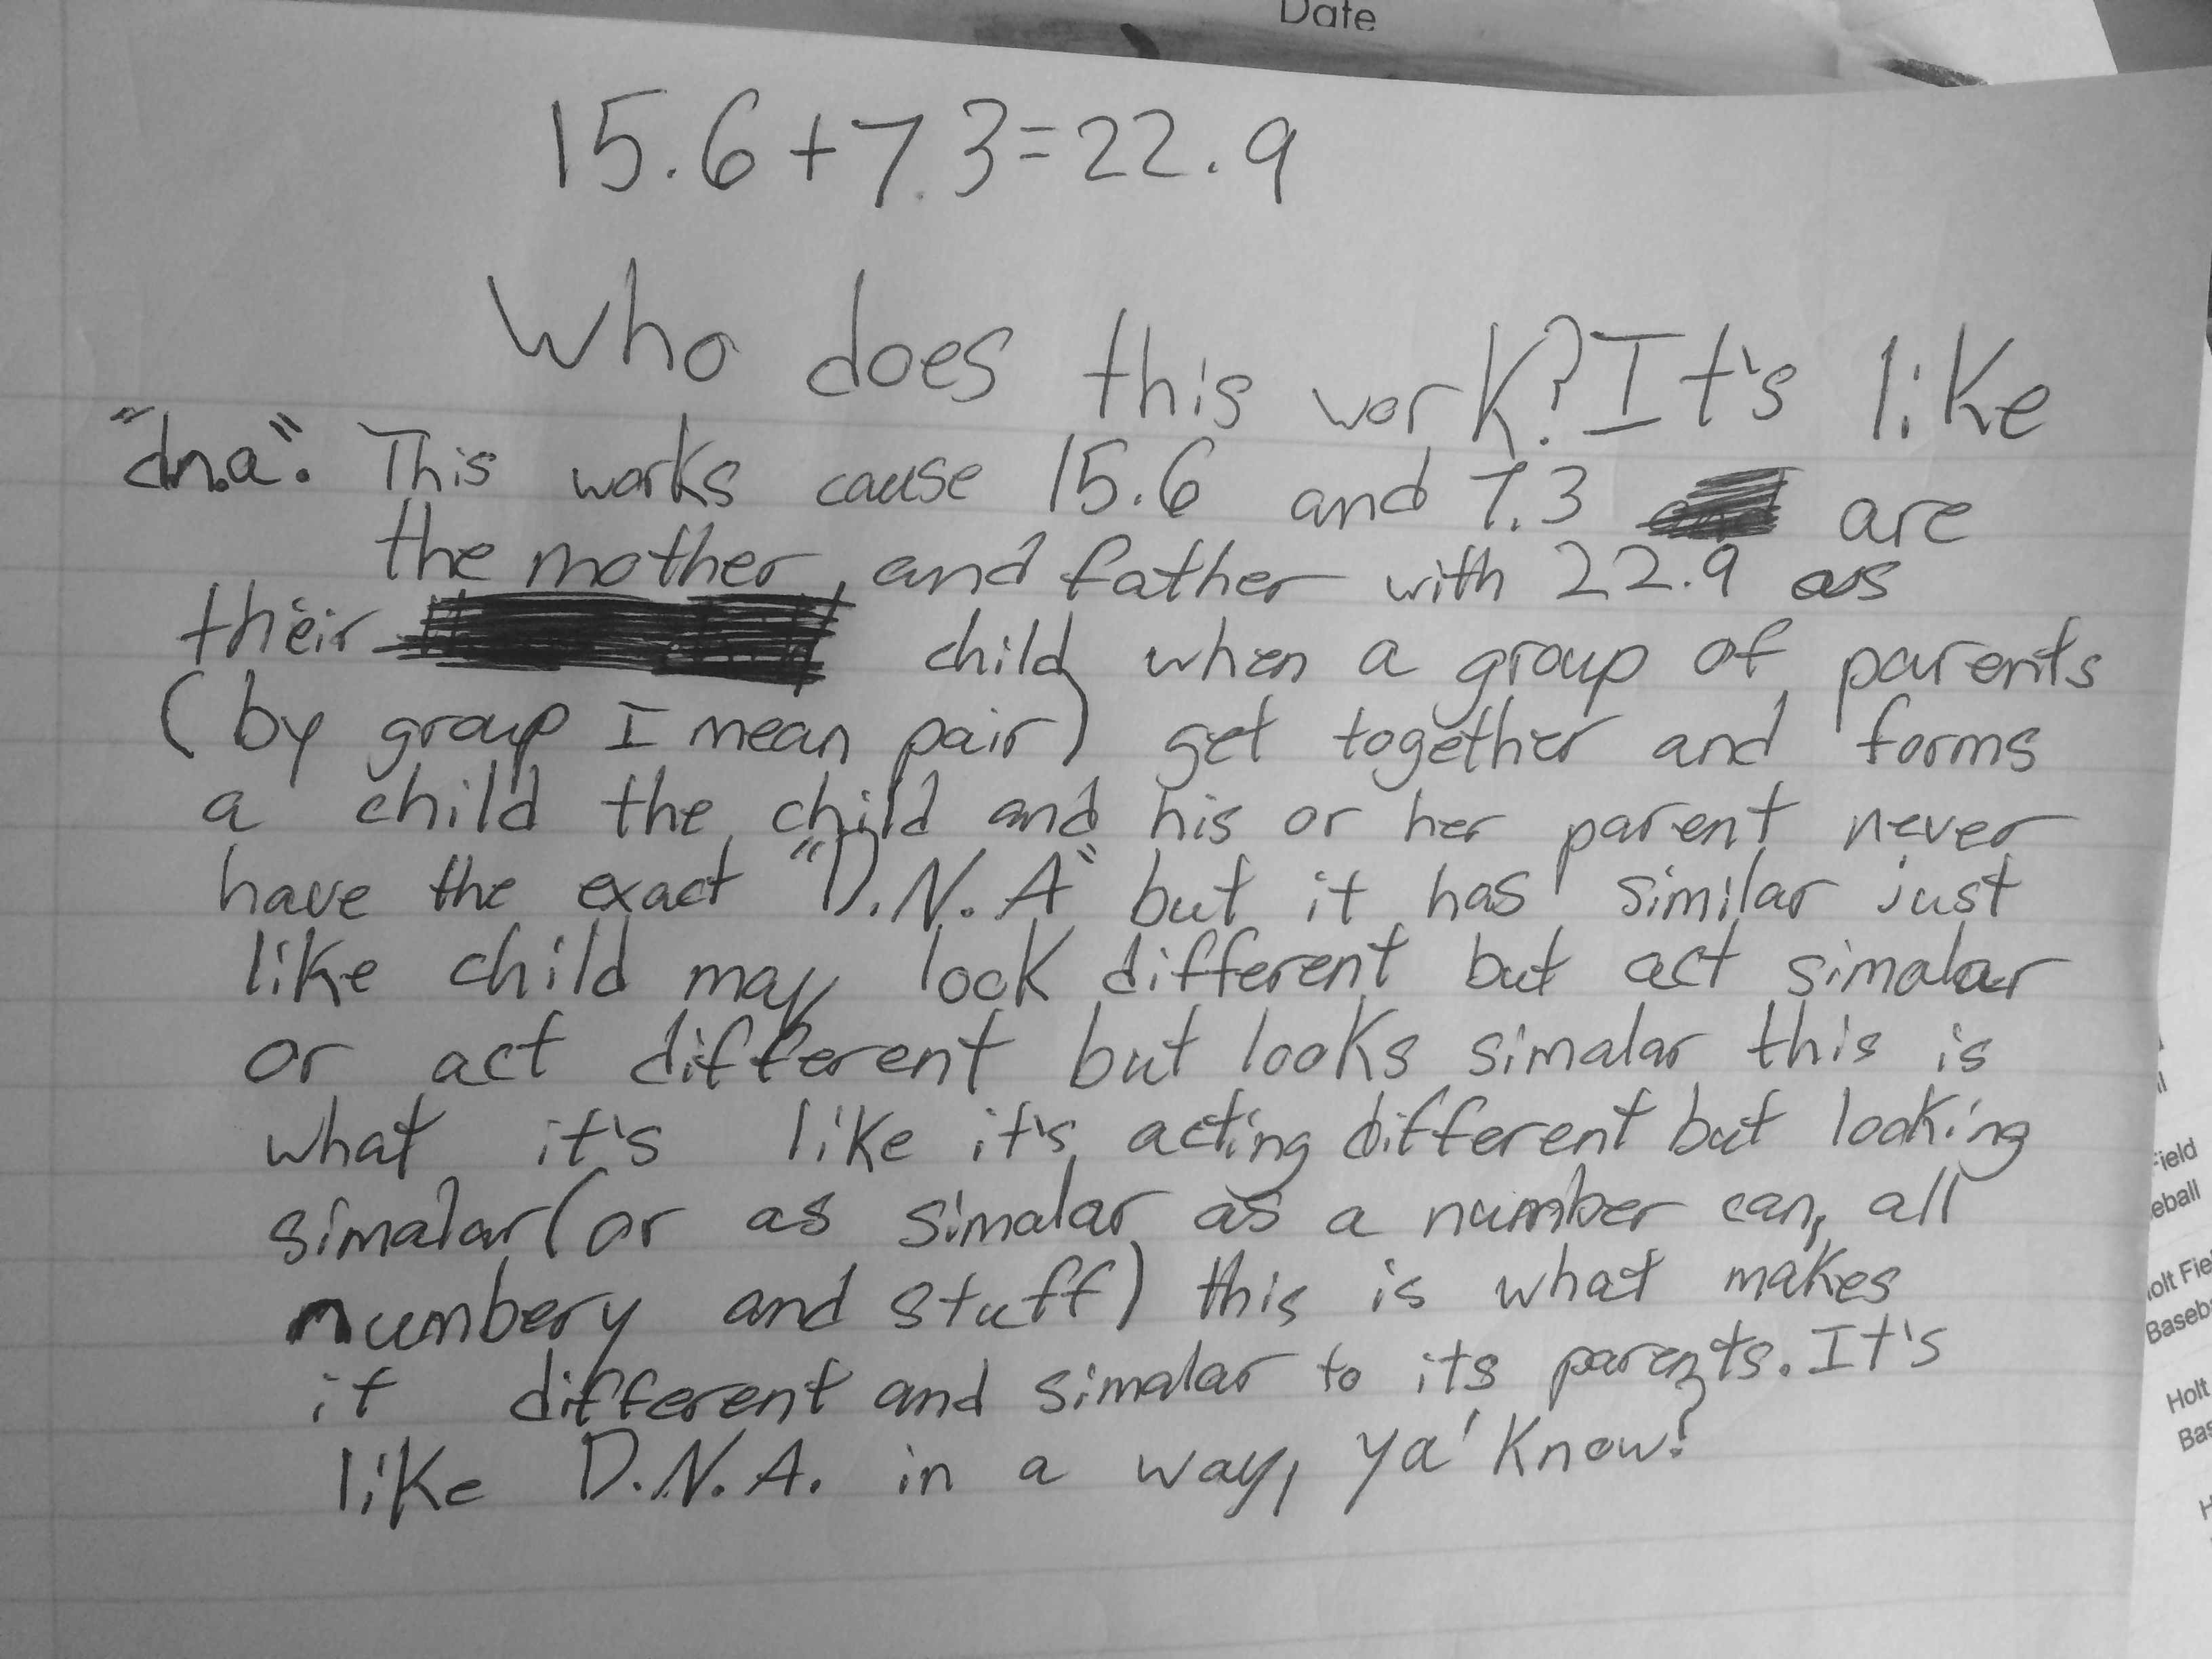 Date
15.6+7.3=22.9
Who does this work? It's like
"d.n.a". This works cause 15.6 and 7.3 are
the mother, and father with 22.9 as
their child when a group of parents
(by group I mean pair) get together and forms
a child the child and his or her parent never
have the exact "D.N.A" but it has similar just
like child may look different but act simalar
or act different but looks simalar this is
what it's like it's acting different but looking
simalar (or as simalar as a number can, all
numbery and stuff) this is what makes
it different and simalar to its parents. It's
like D.N.A. in a way, ya' know?
Field
eball
olt Fie
Baseb
Holt
Bas